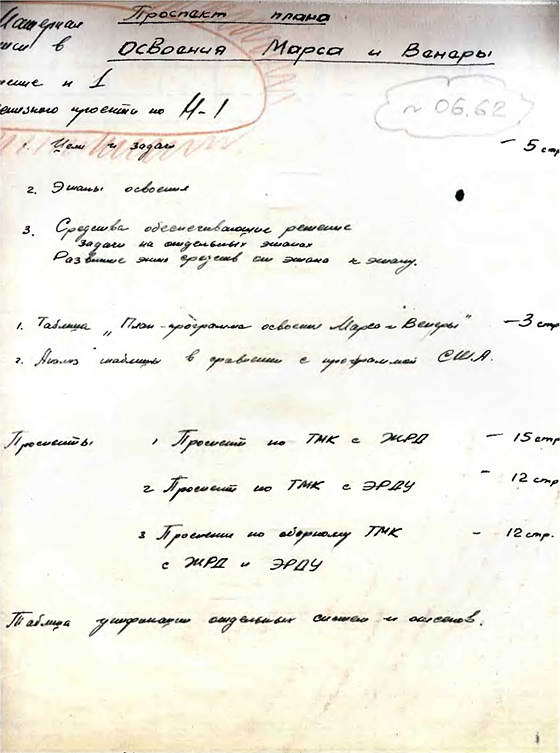 Проспект плана
Материал
освоения Марса и Венеры
в
н 1
проекта по Н-1
~ 06.62
1. Цели и задачи — 5 стр
2. Этапы освоения
3. Средства обеспечивающие решение
задачи на отдельных этапах
Развитие этих средств от этапа к этапу.
1. Таблица „План-программа освоения Марса и Венеры" — 3 стр
2. Анализ таблицы в сравнении с программой США.
Проспекты 1 Проспект по ТМК с ЖРД — 15 стр
2 Проспект по ТМК с ЭРДУ — 12 стр
3 Проспект по сборному ТМК — 12 стр.
с ЖРД и ЭРДУ
Таблица унификации отдельных систем и отсеков.